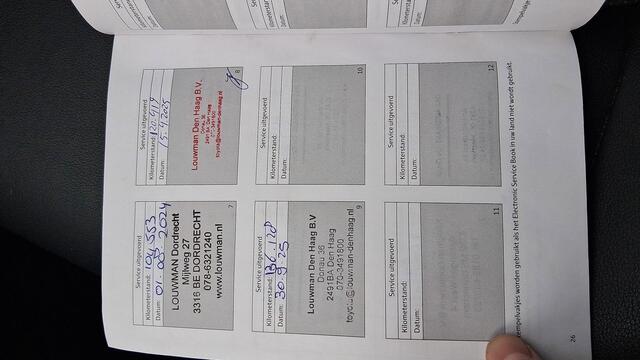 Service uitgevoerd
Kilometerstand: 104.553
Datum: 01-08-2024
LOUWMAN Dordrecht
Mijlweg 27
3316 BE DORDRECHT
078-6321240
www.louwman.nl
7
Service uitgevoerd
Kilometerstand: 120.919
Datum: 15.4.2025
Louwman Den Haag B.V.
Donau 36
2491 BA Den Haag
070-3491800
toyota@louwman-denhaag.nl
8
Service uitgevoerd
Kilometerstand: 136.128
Datum: 30.9.25
Louwman Den Haag B.V
Donau 36
2491BA Den Haag
070-3491800
toyota@louwman-denhaag.nl
9
Service uitgevoerd
Kilometerstand:
Datum:
10
Service uitgevoerd
Kilometerstand:
Datum:
11
Service uitgevoerd
Kilometerstand:
Datum:
12
worden gebruikt als het Electronic Service Book in uw land niet wordt gebruikt.
26